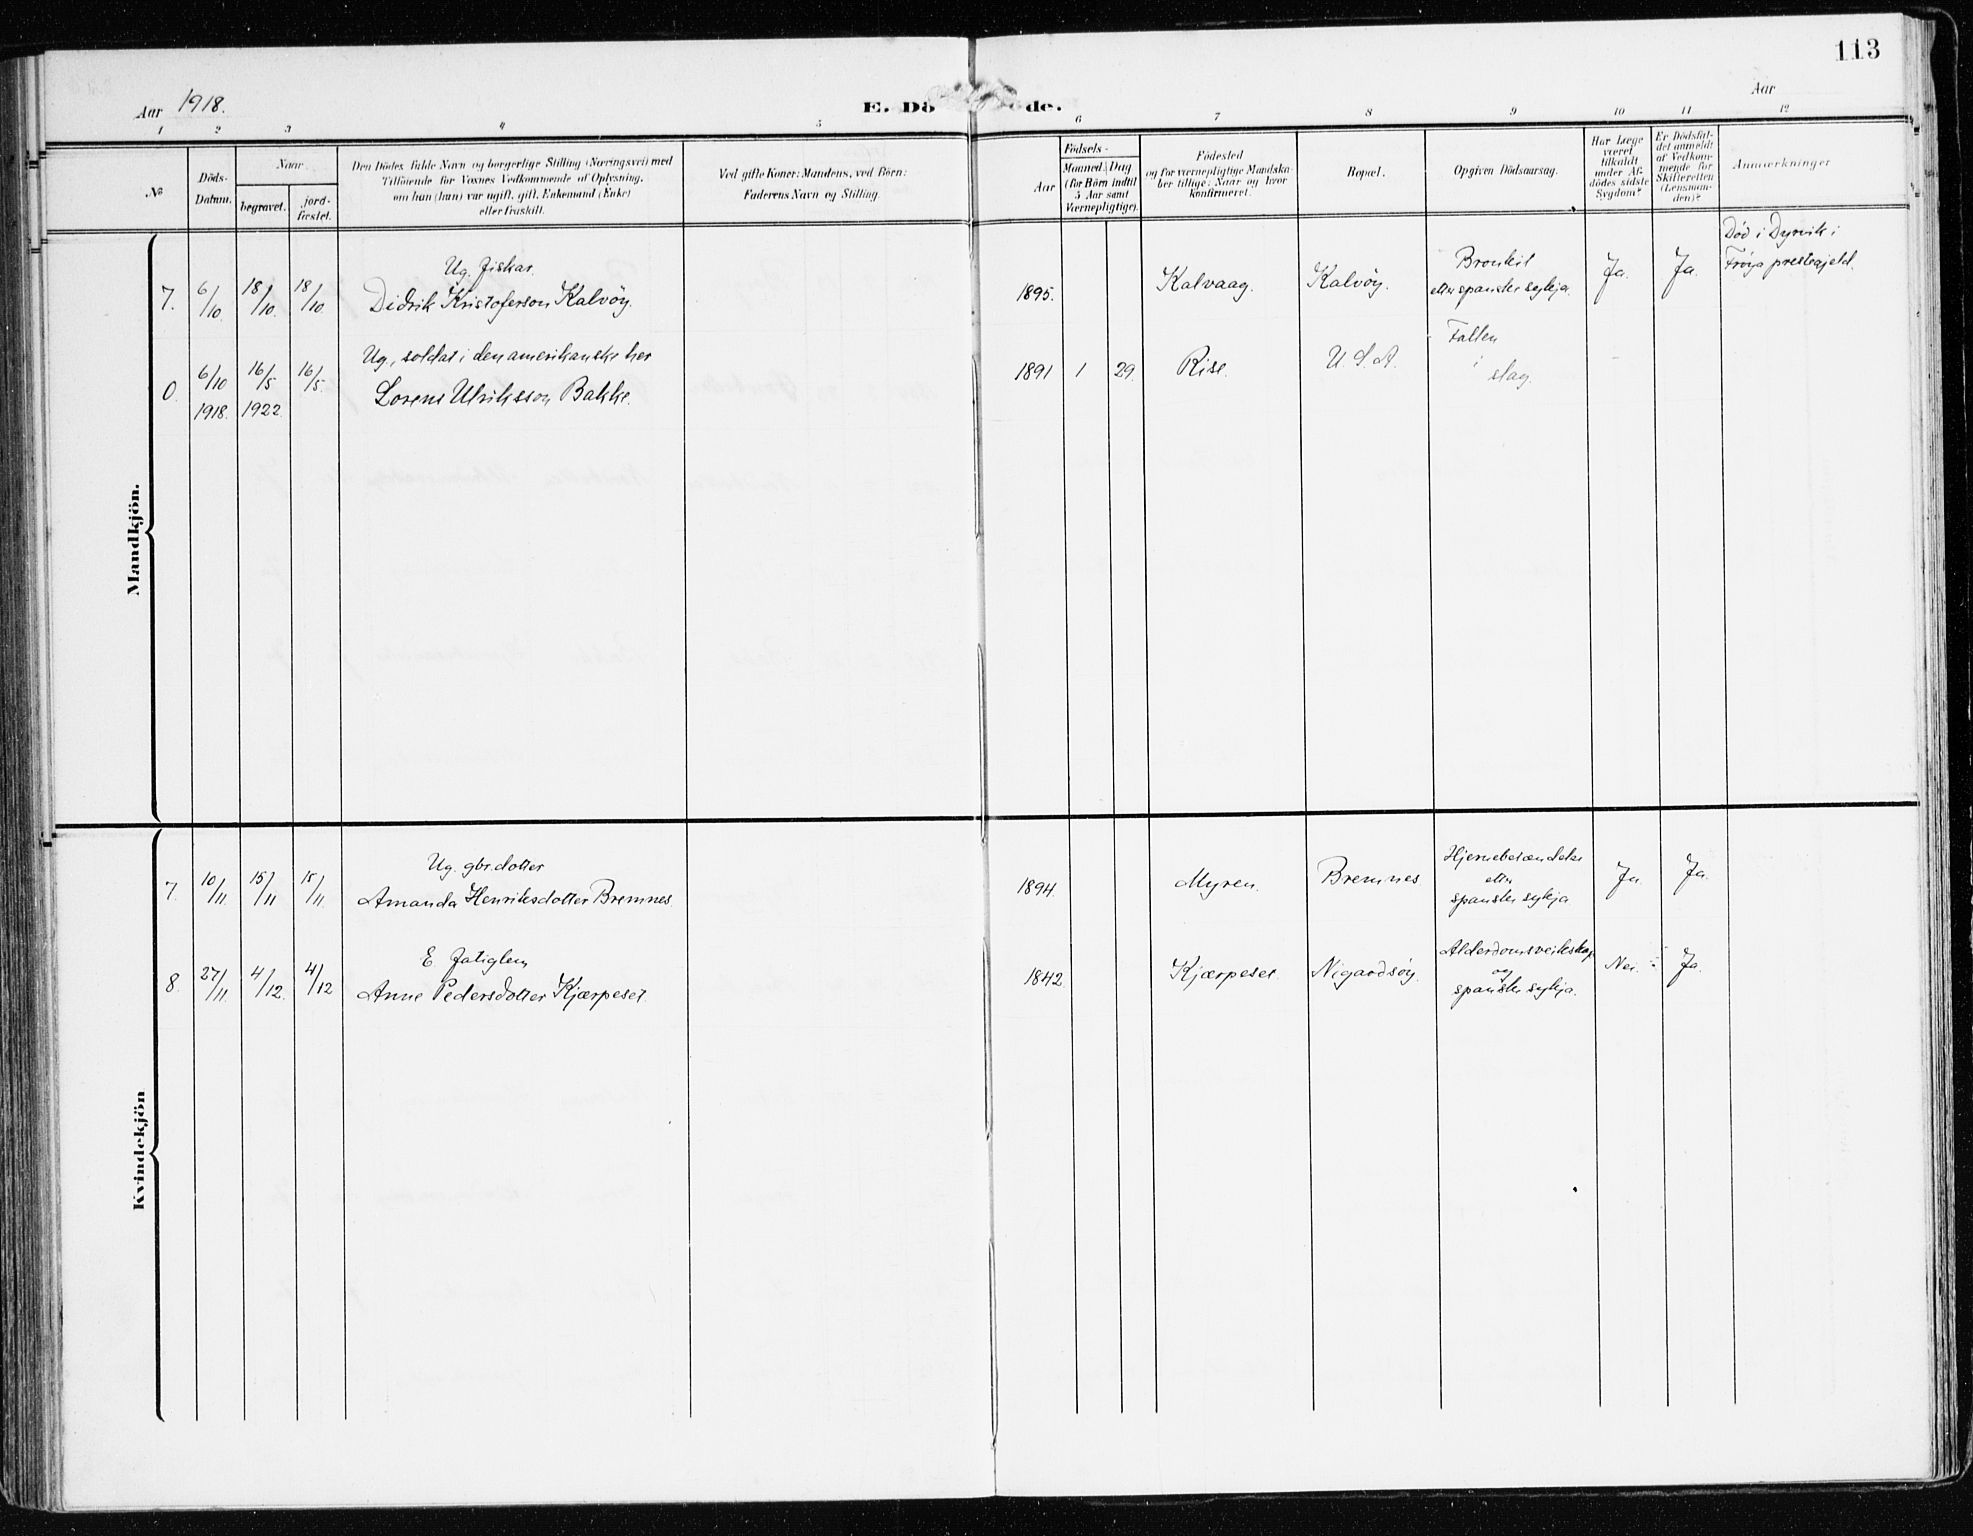 113
Aar 1918.
E. Dö de.
Aar
1 2 3 4 5 6 7 8 9 10 11 12
№
Döds-
Datum.
Naar
begravet.
jord-
fæstet.
Den Dödes fulde Navn og borgerlige Stilling (Næringsvei) med
Tilföiende for Voxnes Vedkommende af Oplysning,
om han (hun) var ugift, gift, Enkemand (Enke)
eller fraskilt.
Ved gifte Koner: Mandens, ved Börn:
Faderens Navn og Stilling.
Födsels-
Aar
Maaned. Dag
(for Börn indtil
5 Aar samt
Værnepligtige).
Födested
og for værnepligtige Mandska-
ber tillige: Naar og hvor
konfirmeret.
Bopæl.
Opgiven Dödsaarsag.
Har Læge
været
tilkaldt
under Af-
dödes sidste
Sygdom?
Er Dödsfal-
det anmeldt
af Vedkom-
mende for
Skifteretten
(Lensman-
den)?
Anmærkninger
Mandkjön.
Ug. fiskar.
7. 6/10 18/10. 18/10. Didrik Kristoferson Kalvöy. 1895. Kalvaag. Kalvöy. Bronkit
etter spansker sykja. Ja. Ja. Död i Dyrvik i
Fröya prestegjeld.
Ug., soldat i den amerikanske her
0. 6/10 1918. 16/5 1922. 16/5. Lorens Ulriksson Bakke. 1891 1 29. Rise. U.S.A. Fallen
i
slag.
Kvindekjön
Ug. gbr.dotter
7. 10/11. 15/11 15/11. Amanda Henriksdotter Bremnes 1894. Myren. Bremnes Hjernebetændelse
etter
spansker sykja Ja. Ja.
E. fatiglem
8. 27/11. 4/12. 4/12 Anne Pedersdotter Kjærpeset. 1842. Kjærpeset. Nigardsöy. Alderdomsveikskap
og
spansker sykja. Nei. Ja.